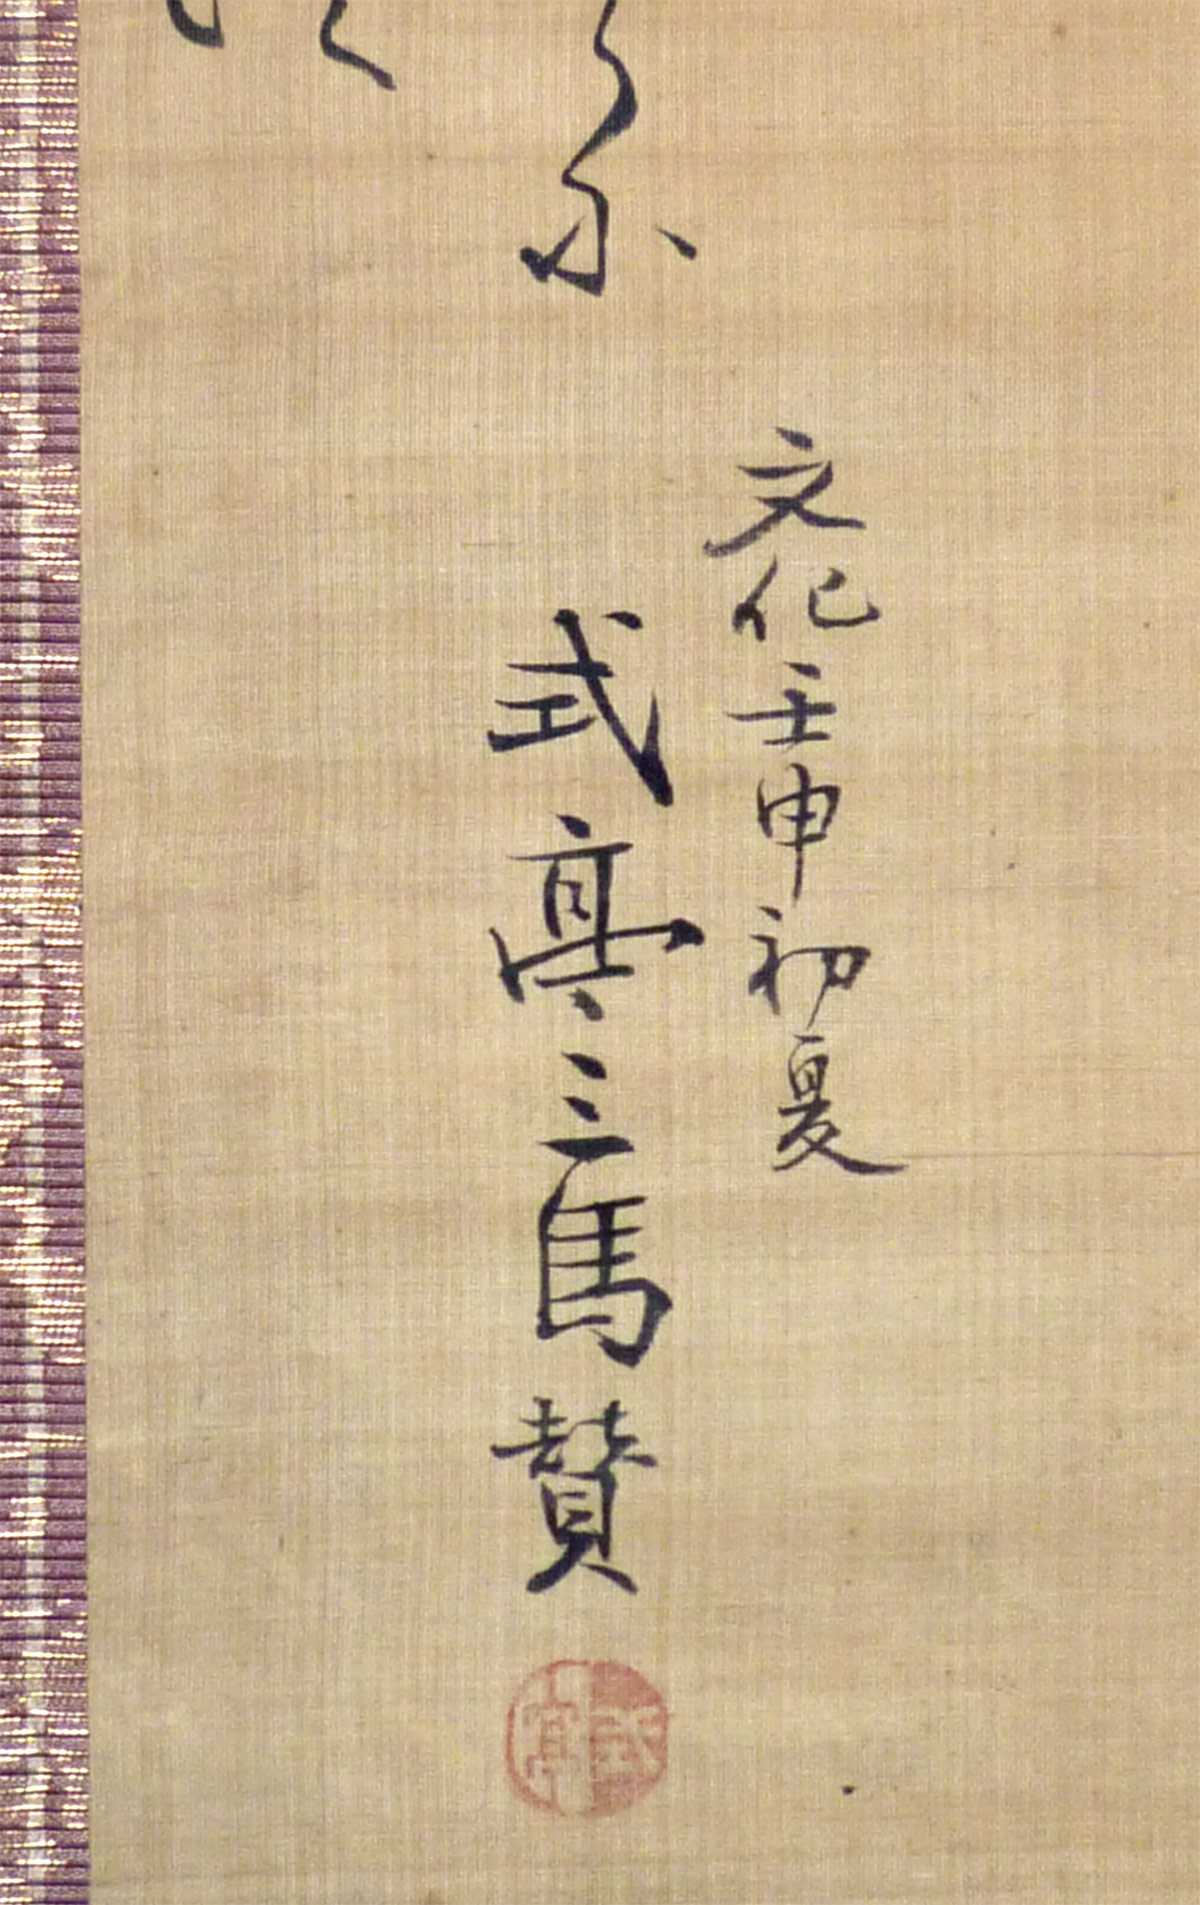 文化壬申初夏
式亭三馬賛
式亭